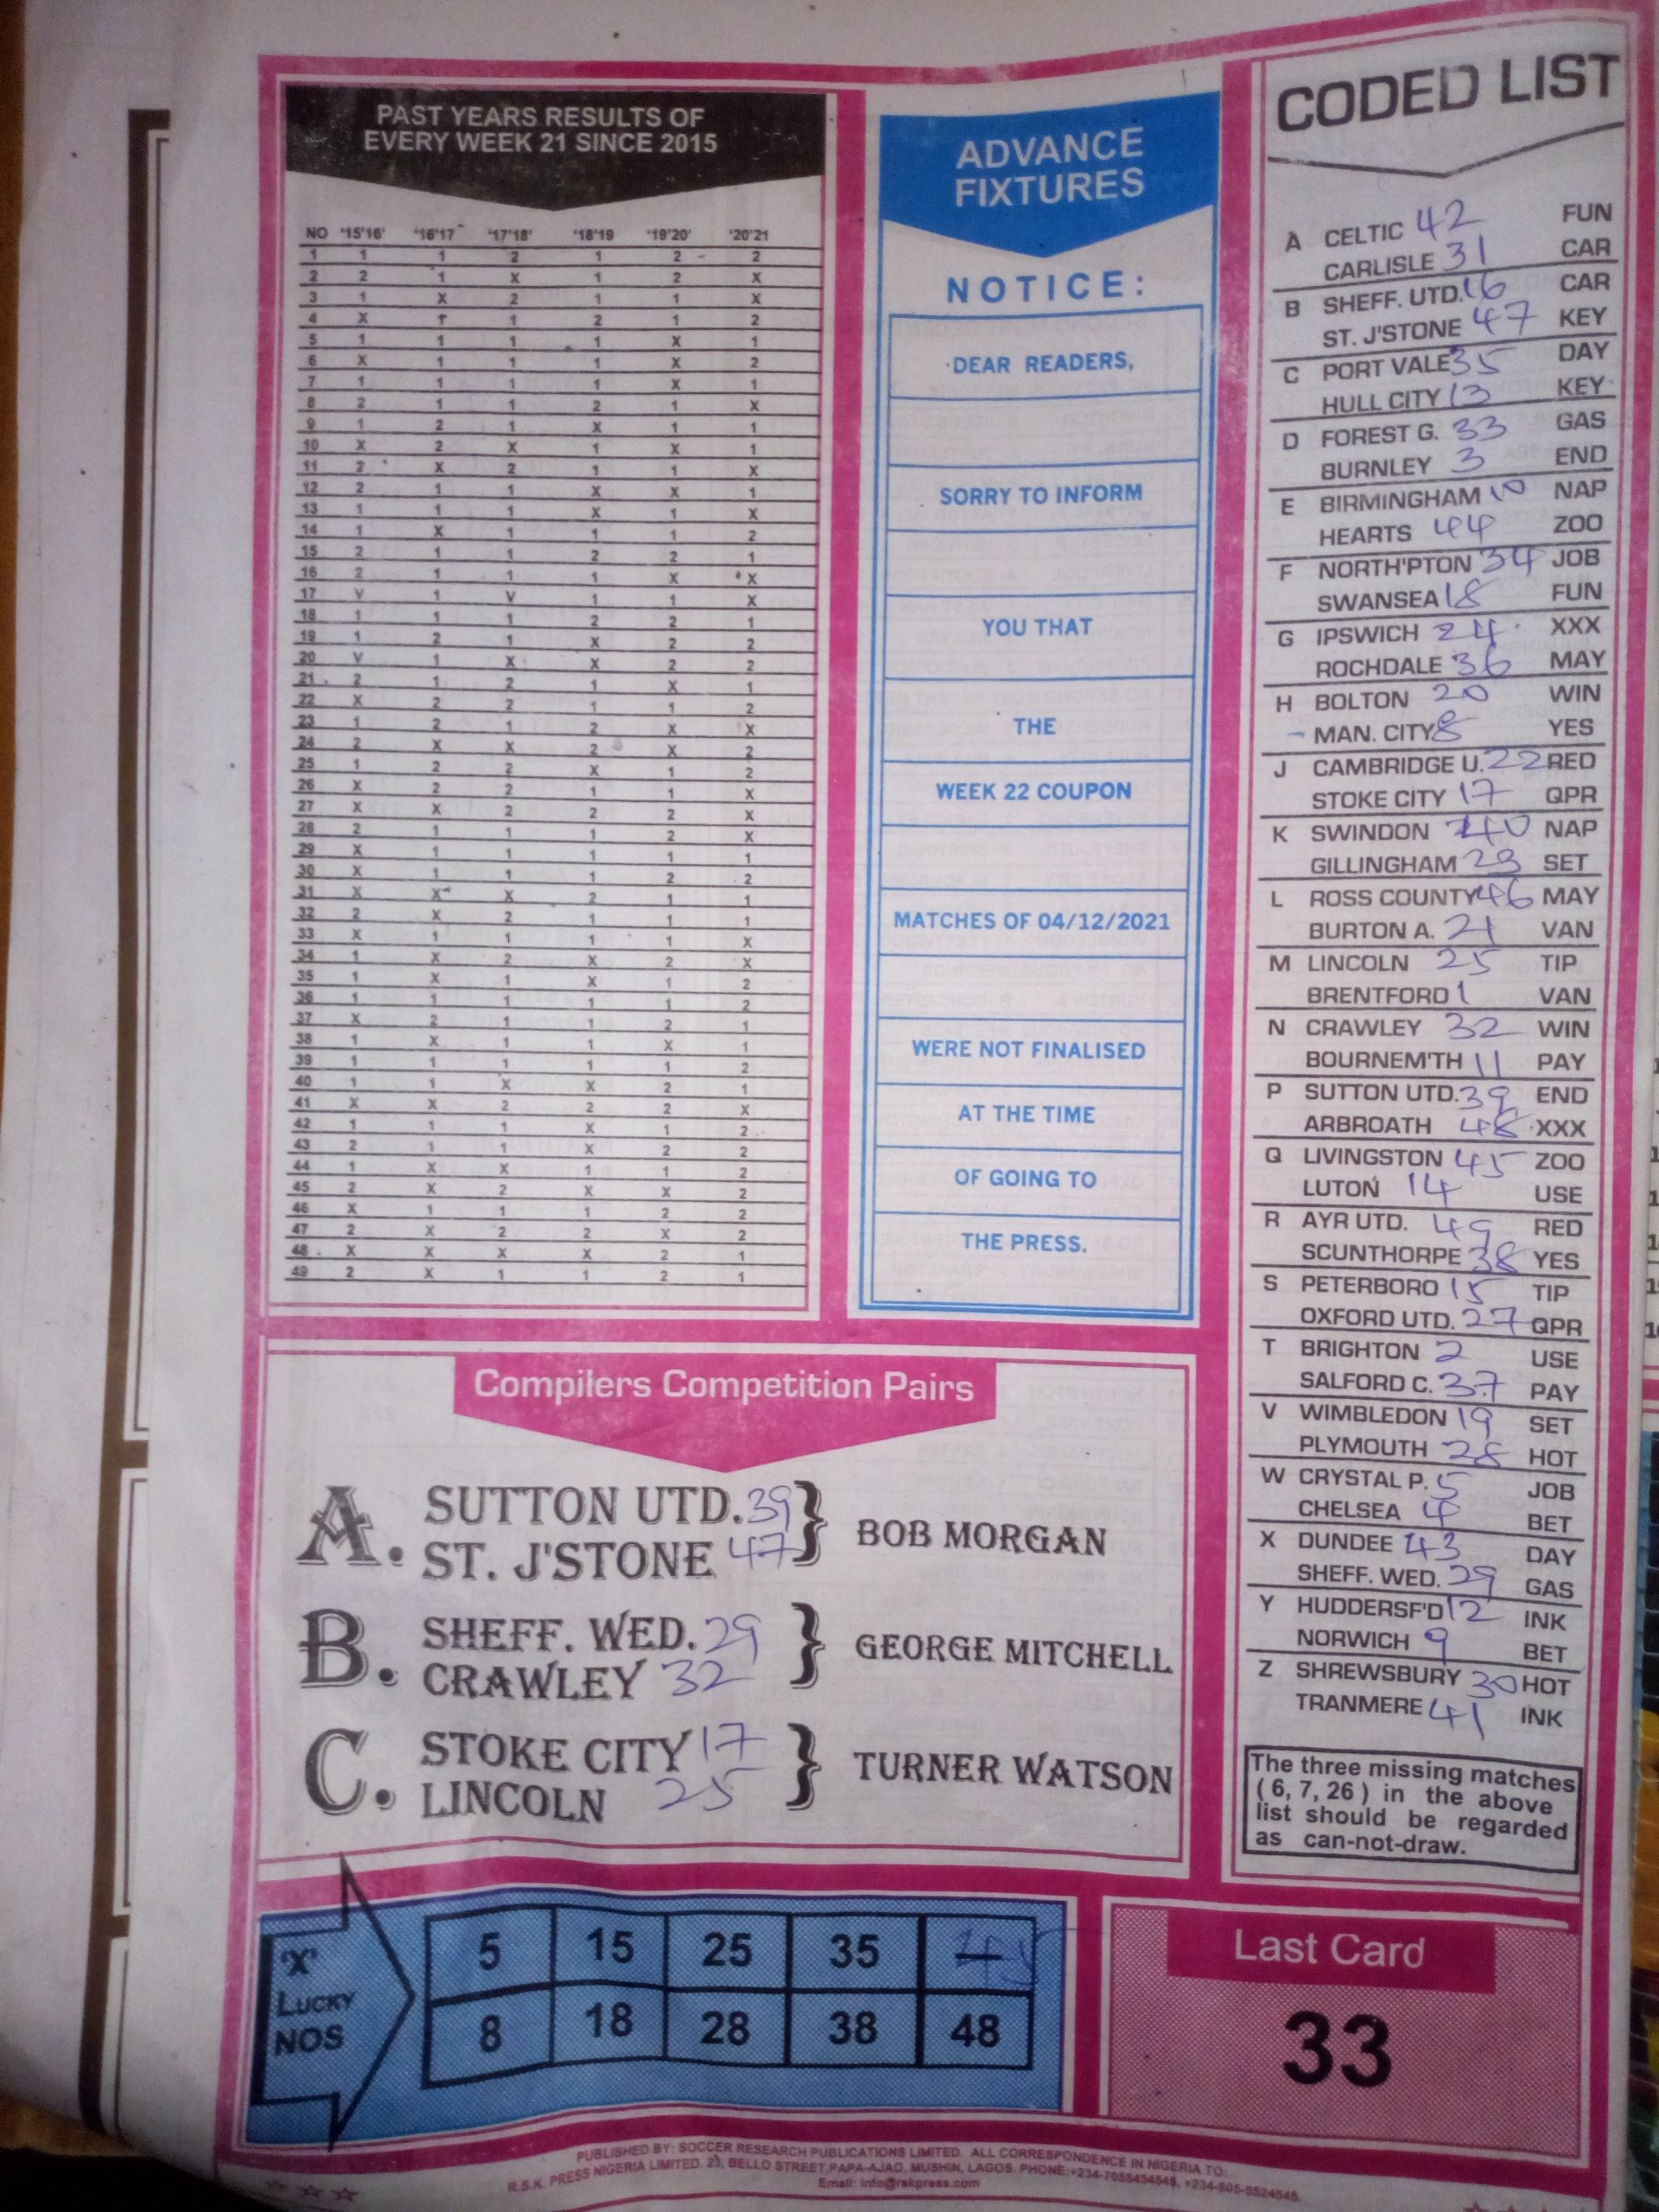 PAST YEARS RESULTS OF
EVERY WEEK 21 SINCE 2015
NO '15'16' '16'17 '17'18' '18'19 '19'20' '20'21
1 1 1 2 1 2 2
2 2 1 X 1 2 X
3 1 X 2 1 1 X
4 X 1 1 2 1 2
5 1 1 1 1 X 1
6 X 1 1 1 X 2
7 1 1 1 1 X 1
8 2 1 1 2 1 X
9 1 2 1 X 1 1
10 X 2 X 1 X 1
11 2 X 2 1 1 X
12 2 1 1 X X 1
13 1 1 1 X 1 X
14 1 X 1 1 1 2
15 2 1 1 2 2 1
16 2 1 1 1 X X
17 V 1 V 1 1 X
18 1 1 1 2 2 1
19 1 2 1 X 2 2
20 V 1 X X 2 2
21 2 1 2 1 X 1
22 X 2 2 1 1 2
23 1 2 1 2 X X
24 2 X X 2 X 2
25 1 2 2 X 1 2
26 X 2 2 1 1 X
27 X X 2 2 2 X
28 2 1 1 1 2 X
29 X 1 1 1 1 1
30 X 1 1 1 2 2
31 X X X 2 1 1
32 2 X 2 1 1 1
33 X 1 1 1 1 X
34 1 X 2 X 2 X
35 1 X 1 X 1 2
36 1 1 1 1 1 2
37 X 2 1 1 2 1
38 1 X 1 1 X 1
39 1 1 1 1 1 2
40 1 1 X X 2 1
41 X X 2 2 2 X
42 1 1 1 X 1 2
43 2 1 1 X 2 2
44 1 X X 1 1 2
45 2 X 2 X X 2
46 X 1 1 1 2 2
47 2 X 2 2 X 2
48 X X X X 2 1
49 2 X 1 1 2 1
ADVANCE
FIXTURES
NOTICE:
DEAR READERS,
SORRY TO INFORM
YOU THAT
THE
WEEK 22 COUPON
MATCHES OF 04/12/2021
WERE NOT FINALISED
AT THE TIME
OF GOING TO
THE PRESS.
CODED LIST
A CELTIC 42 FUN
CARLISLE 31 CAR
B SHEFF. UTD. 16 CAR
ST. J'STONE 47 KEY
C PORT VALE 35 DAY
HULL CITY 13 KEY
D FOREST G. 33 GAS
BURNLEY 3 END
E BIRMINGHAM 10 NAP
HEARTS 44 ZOO
F NORTH'PTON 34 JOB
SWANSEA 18 FUN
G IPSWICH 24 XXX
ROCHDALE 36 MAY
H BOLTON 20 WIN
MAN. CITY 8 YES
J CAMBRIDGE U. 22 RED
STOKE CITY 17 QPR
K SWINDON 40 NAP
GILLINGHAM 23 SET
L ROSS COUNTY 46 MAY
BURTON A. 21 VAN
M LINCOLN 25 TIP
BRENTFORD 1 VAN
N CRAWLEY 32 WIN
BOURNEM'TH 11 PAY
P SUTTON UTD. 39 END
ARBROATH 48 XXX
Q LIVINGSTON 45 ZOO
LUTON 14 USE
R AYR UTD. 49 RED
SCUNTHORPE 38 YES
S PETERBORO 15 TIP
OXFORD UTD. 27 QPR
T BRIGHTON 2 USE
SALFORD C. 37 PAY
V WIMBLEDON 19 SET
PLYMOUTH 28 HOT
W CRYSTAL P. 5 JOB
CHELSEA 4 BET
X DUNDEE 43 DAY
SHEFF. WED. 29 GAS
Y HUDDERSF'D 12 INK
NORWICH 9 BET
Z SHREWSBURY 30 HOT
TRANMERE 41 INK
The three missing matches
( 6, 7, 26 ) in the above
list should be regarded
as can-not-draw.
Compilers Competition Pairs
A. SUTTON UTD. 39
ST. J'STONE 47
BOB MORGAN
B. SHEFF. WED. 29
CRAWLEY 32
GEORGE MITCHELL
C. STOKE CITY 17
LINCOLN 25
TURNER WATSON
'X'
LUCKY
NOS
5 15 25 35 45
8 18 28 38 48
Last Card
33
PUBLISHED BY: SOCCER RESEARCH PUBLICATIONS LIMITED. ALL CORRESPONDENCE IN NIGERIA TO:
R.S.K. PRESS NIGERIA LIMITED. 23, BELLO STREET, PAPA-AJAO, MUSHIN, LAGOS. PHONE:
Email: info@rskpress.com